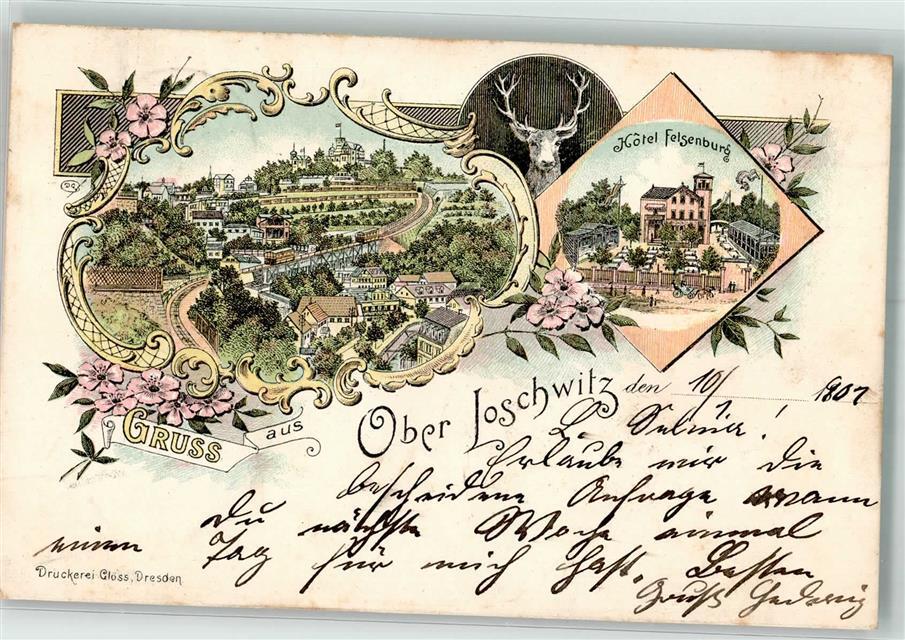 Hôtel Felsenburg
GRUSS aus Ober Loschwitz den 10/ 1807
L. Selma!
Erlaube mir die
bescheidene Anfrage wann
Du nächste Woche einmal
einen Tag für mich hast. Besten
Gruß Hedwig
Druckerei Glöss, Dresden